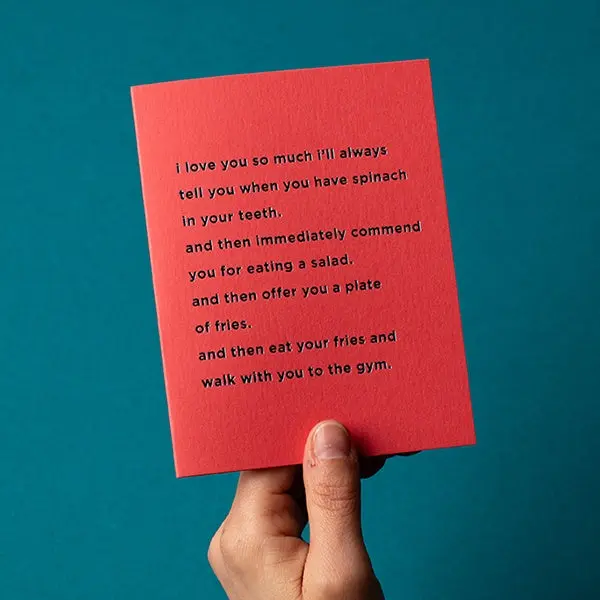 i love you so much i'll always
tell you when you have spinach
in your teeth.
and then immediately commend
you for eating a salad.
and then offer you a plate
of fries.
and then eat your fries and
walk with you to the gym.